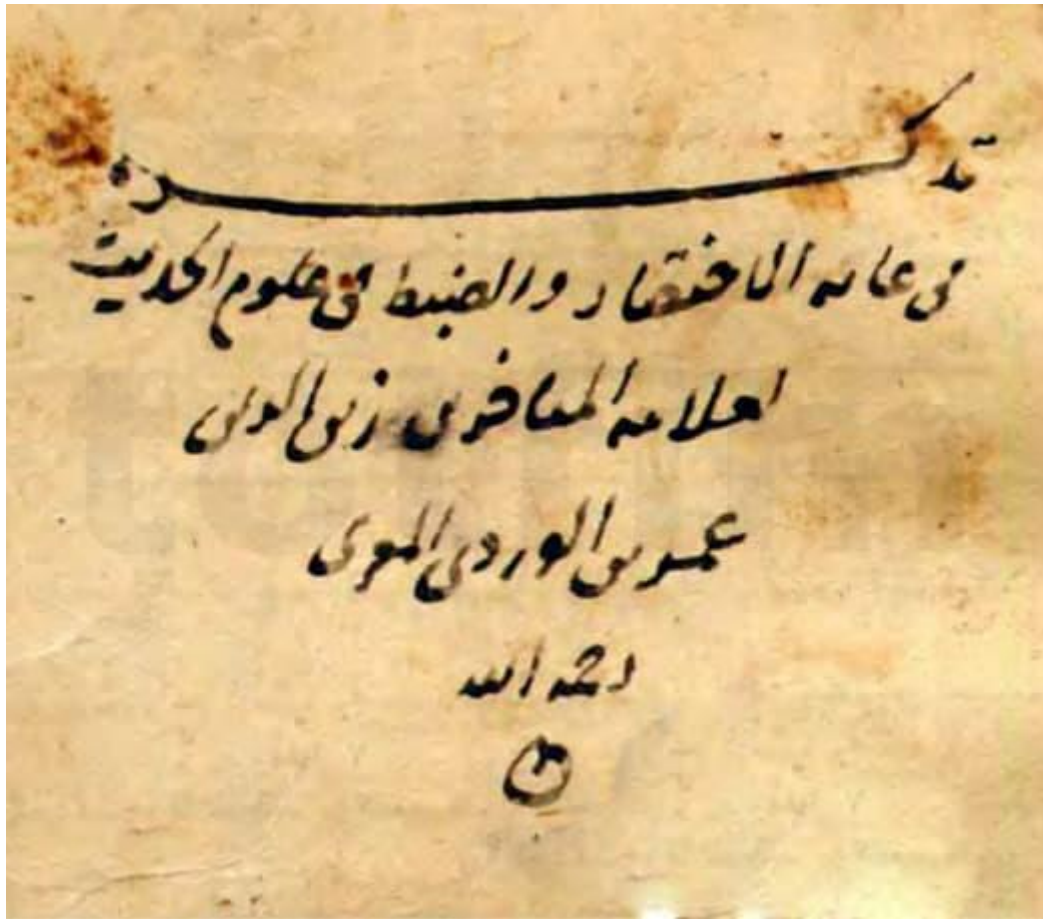 تذكـــــرة
في غاية الاختصار والضبط في علوم الحديث
لعلامة المتأخرين زين الدين
عمر بن الوردي المعري
رحمه الله